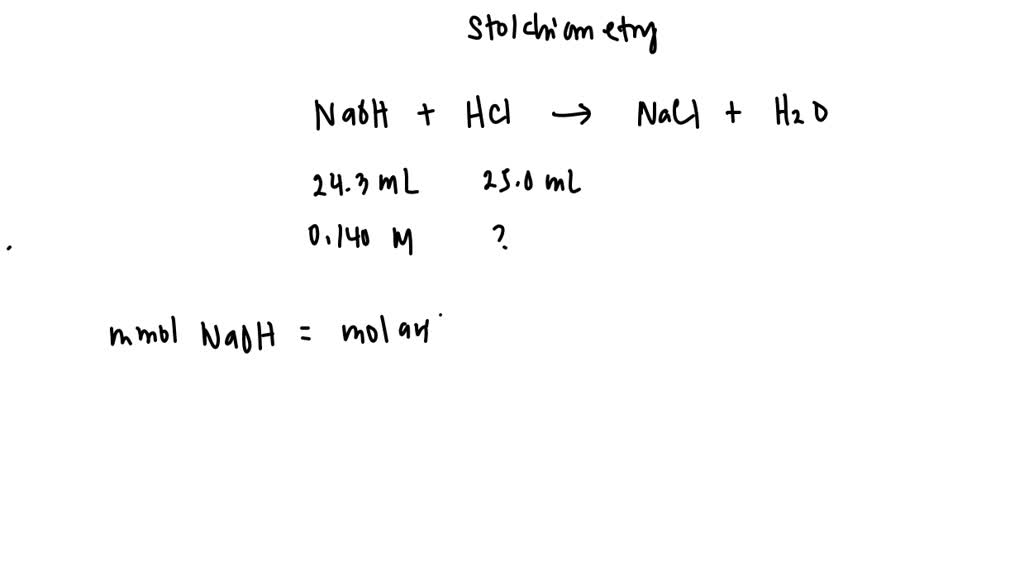 Stolchiometry
NaOH + HCl → NaCl + H2O
24.3 mL 25.0 mL
0.140 M ?
mmol NaOH = molari